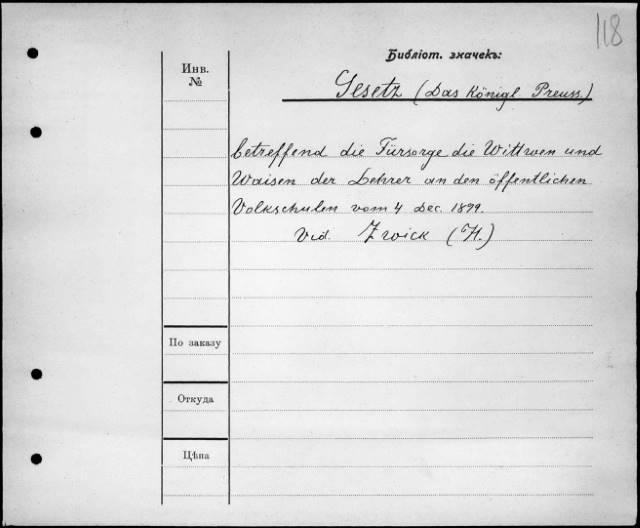 118
Библіот. значекъ:
Инв.
№
Gesetz (Das Königl Preuss)
betreffend die Fürsorge die Wittwen und
Waisen der Lehrer an den öffentlichen
Volkschulen vom 4 Dec. 1899.
Vid. Zwick (H.)
По заказу
Откуда
Цѣна